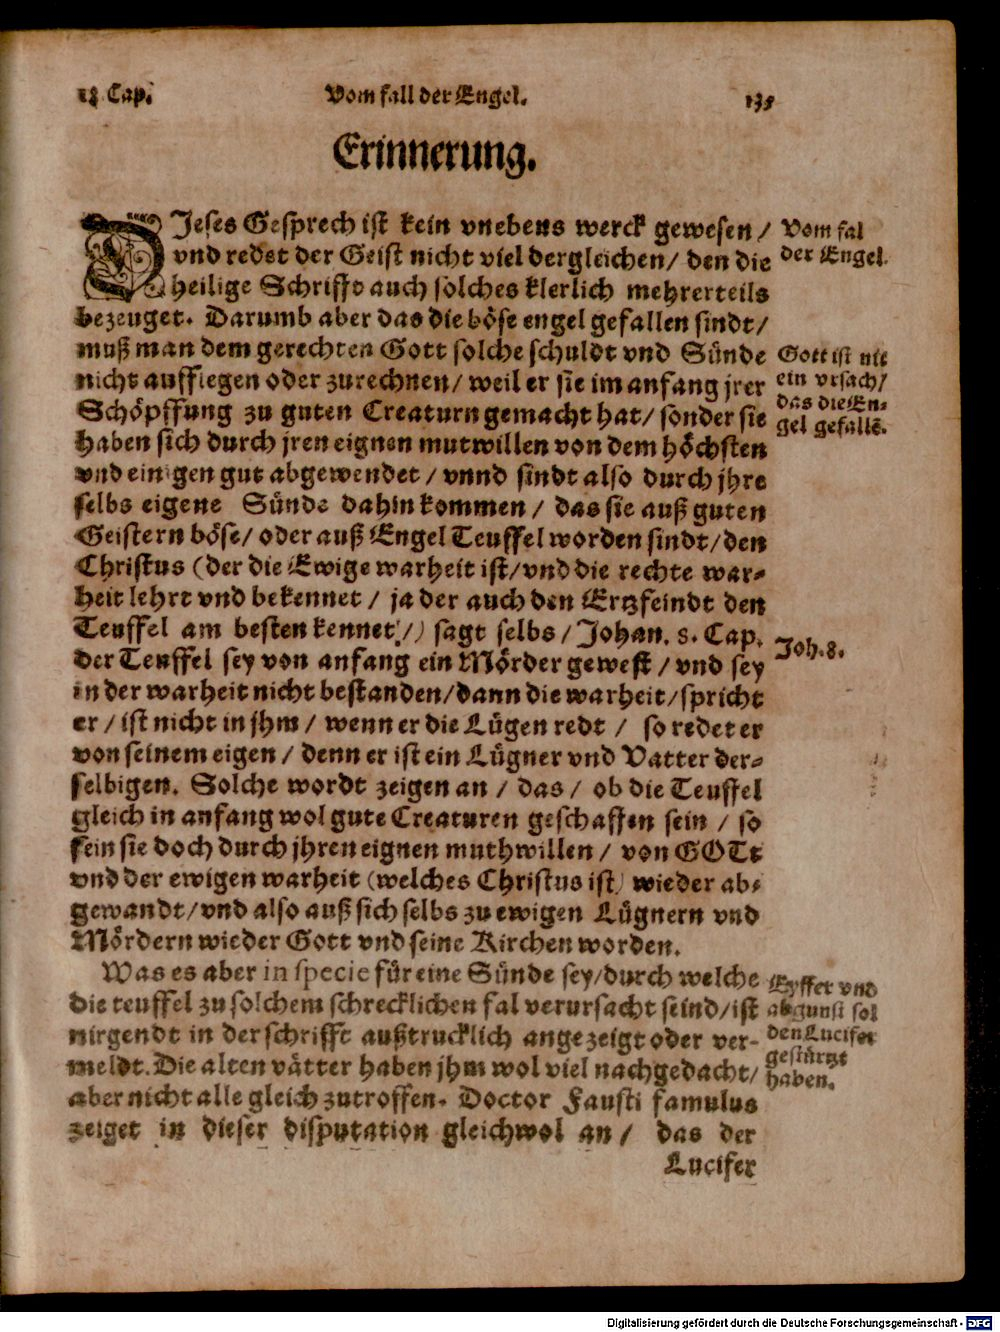 13 Cap. Vom fall der Engel. 135
Erinnerung.
DJeses Gesprech ist kein vnebens werck gewesen /
vnd redet der Geist nicht viel dergleichen/ den die
heilige Schrifft auch solches klerlich mehrerteils
bezeuget. Darumb aber das die böse engel gefallen sindt/
muß man dem gerechten Gott solche schuldt vnd Sünde
nicht aufflegen oder zurechnen/ weil er sie im anfang jrer
Schöpffung zu guten Creaturn gemacht hat/ sonder sie
haben sich durch jren eignen mutwillen von dem höchsten
vnd einigen gut abgewendet / vnnd sindt also durch jhre
selbs eigene Sünde dahin kommen / das sie auß guten
Geistern böse/ oder auß Engel Teuffel worden sindt/ den
Christus (der die Ewige warheit ist/ vnd die rechte war-
heit lehrt vnd bekennet / ja der auch den Ertzfeindt den
Teuffel am besten kennet/) sagt selbs / Johan. 8. Cap.
der Teuffel sey von anfang ein Mörder gewest / vnd sey
in der warheit nicht bestanden/ dann die warheit/ spricht
er / ist nicht in jhm / wenn er die Lügen redt / so redet er
von seinem eigen / denn er ist ein Lügner vnd Vatter der-
selbigen. Solche wordt zeigen an / das / ob die Teuffel
gleich in anfang wol gute Creaturen geschaffen sein / so
sein sie doch durch jhren eignen muthwillen / von GOTt
vnd der ewigen warheit (welches Christus ist) wieder ab-
gewandt/ vnd also auß sich selbs zu ewigen Lügnern vnd
Mördern wieder Gott vnd seine Kirchen worden.
Was es aber in specie für eine Sünde sey/ durch welche
die teuffel zu solchem schrecklichen fal verursacht seind/ ist
nirgendt in der schrifft außtrucklich angezeigt oder ver-
meldt. Die alten vätter haben jhm wol viel nachgedacht/
aber nicht alle gleich zutroffen. Doctor Fausti famulus
zeiget in dieser disputation gleichwol an / das der
Lucifer
Vom fal
der Engel.
Gott ist nit
ein vrsach/
das die En-
gel gefallē.
Joh. 8.
Eyffer vnd
abgunst sol
den Lucifer
gestürtzt
haben.
Digitalisierung gefördert durch die Deutsche Forschungsgemeinschaft - DFG